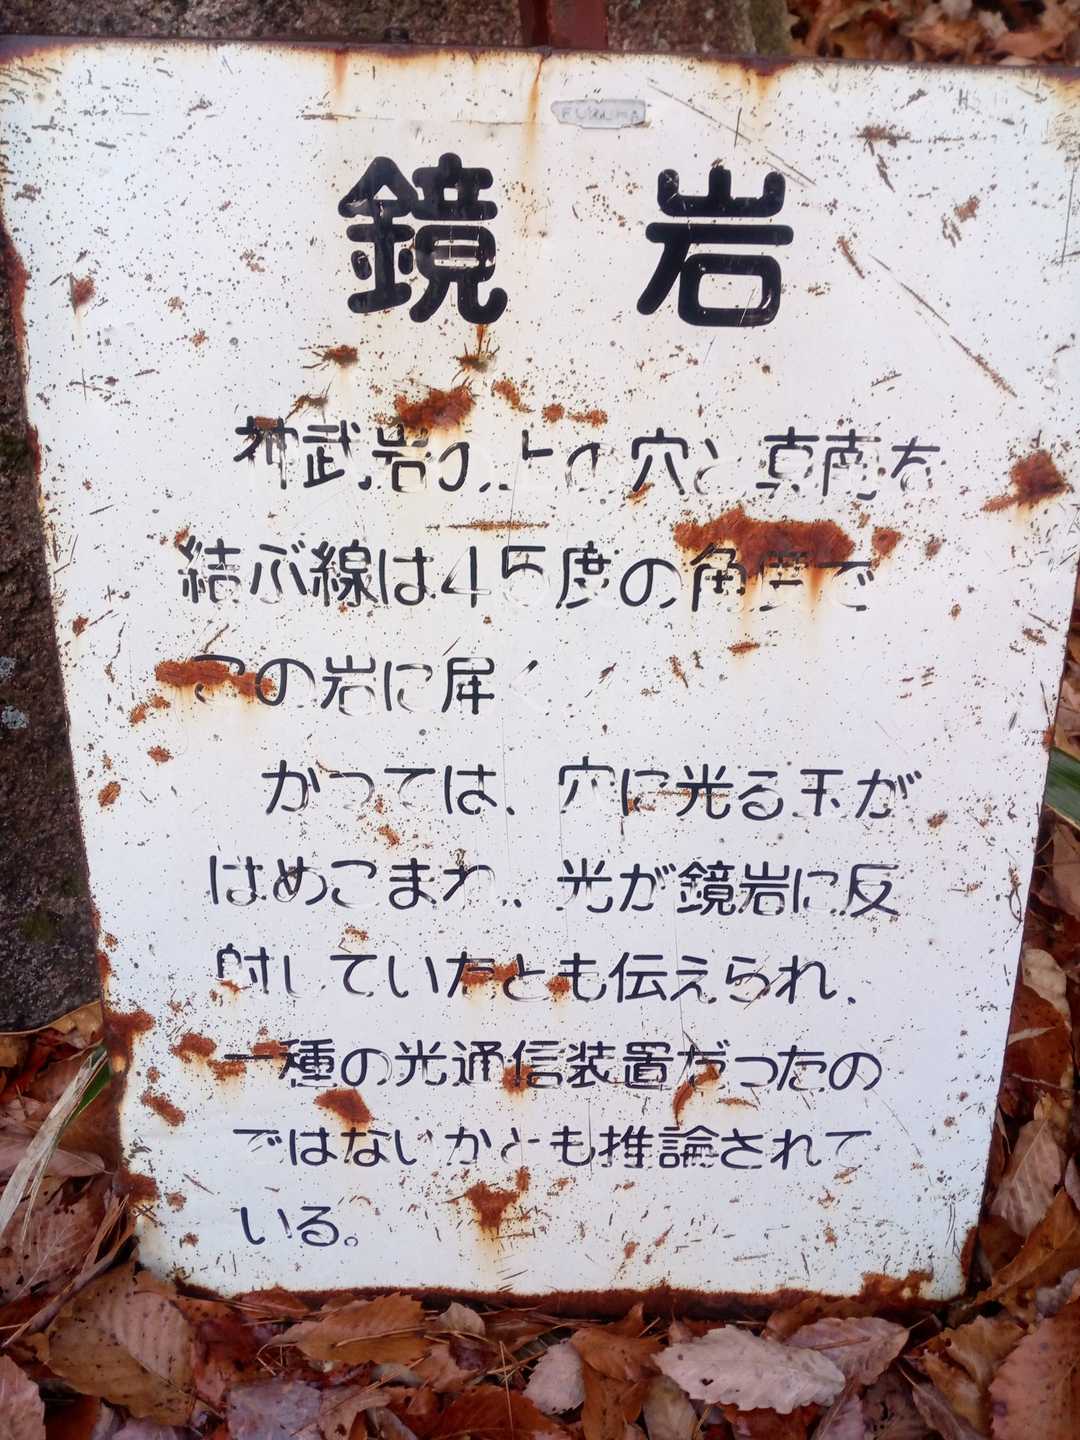 鏡岩
神武岩の上の穴と真南を
結ぶ線は45度の角度で
この岩に届く
かつては、穴に光る玉が
はめこまれ、光が鏡岩に反
射していたとも伝えられ、
一種の光通信装置だったの
ではないかとも推論されて
いる。